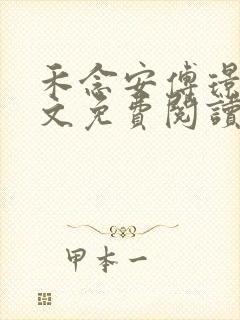 禾念安傅璟
文免費閱讀
甲本一